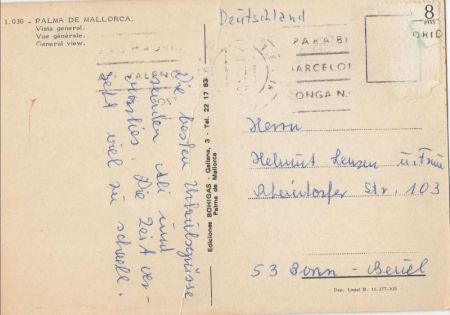 1.030 - PALMA DE MALLORCA.
Vista general.
Vue générale.
General view.
Deutschland
8
PTAS
PARA BI
BARCELON
PONGA N.
Die besten Urlaubsgrüsse
senden Ali und
Die Zeit ver-
geht viel zu schnell.
Ediciones BOHIGAS - Gallana, 3 - Tel. 22 17 83
Palma de Mallorca
Herrn
Helmut Hensen u. Frau
Rheindorfer Str. 103
53 Bonn - Beuel
Dep. Legal B. 11.277-XII